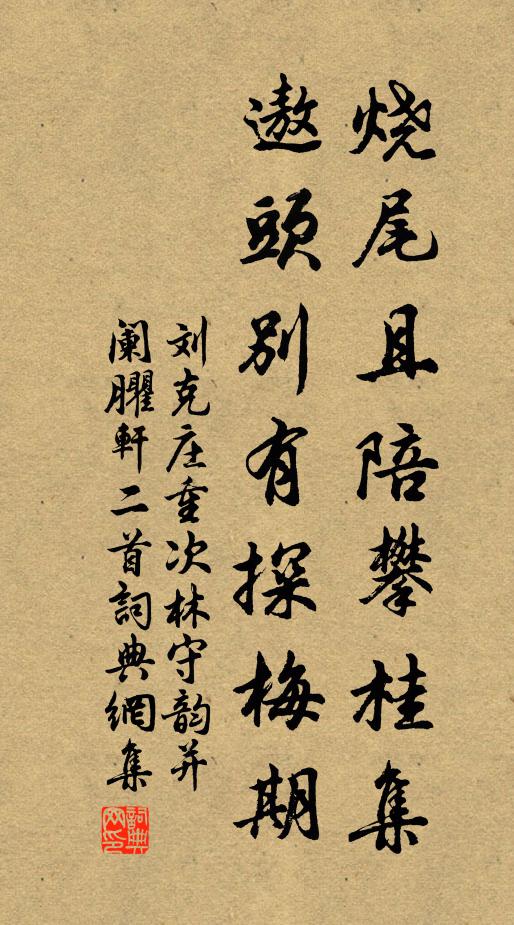 烧尾且陪攀桂集
遨頭别有探梅期
刘克庄重次林守韵并
阑臞軒二首詞典網集
詞典网印